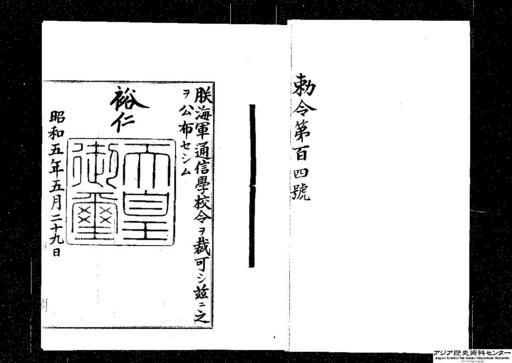 勅令第百四號
朕海軍通信學校令ヲ裁可シ茲ニ之
ヲ公布セシム
裕仁
天皇
御璽
昭和五年五月二十九日
アジア歴史資料センター
Japan Center for Asian Historical Records